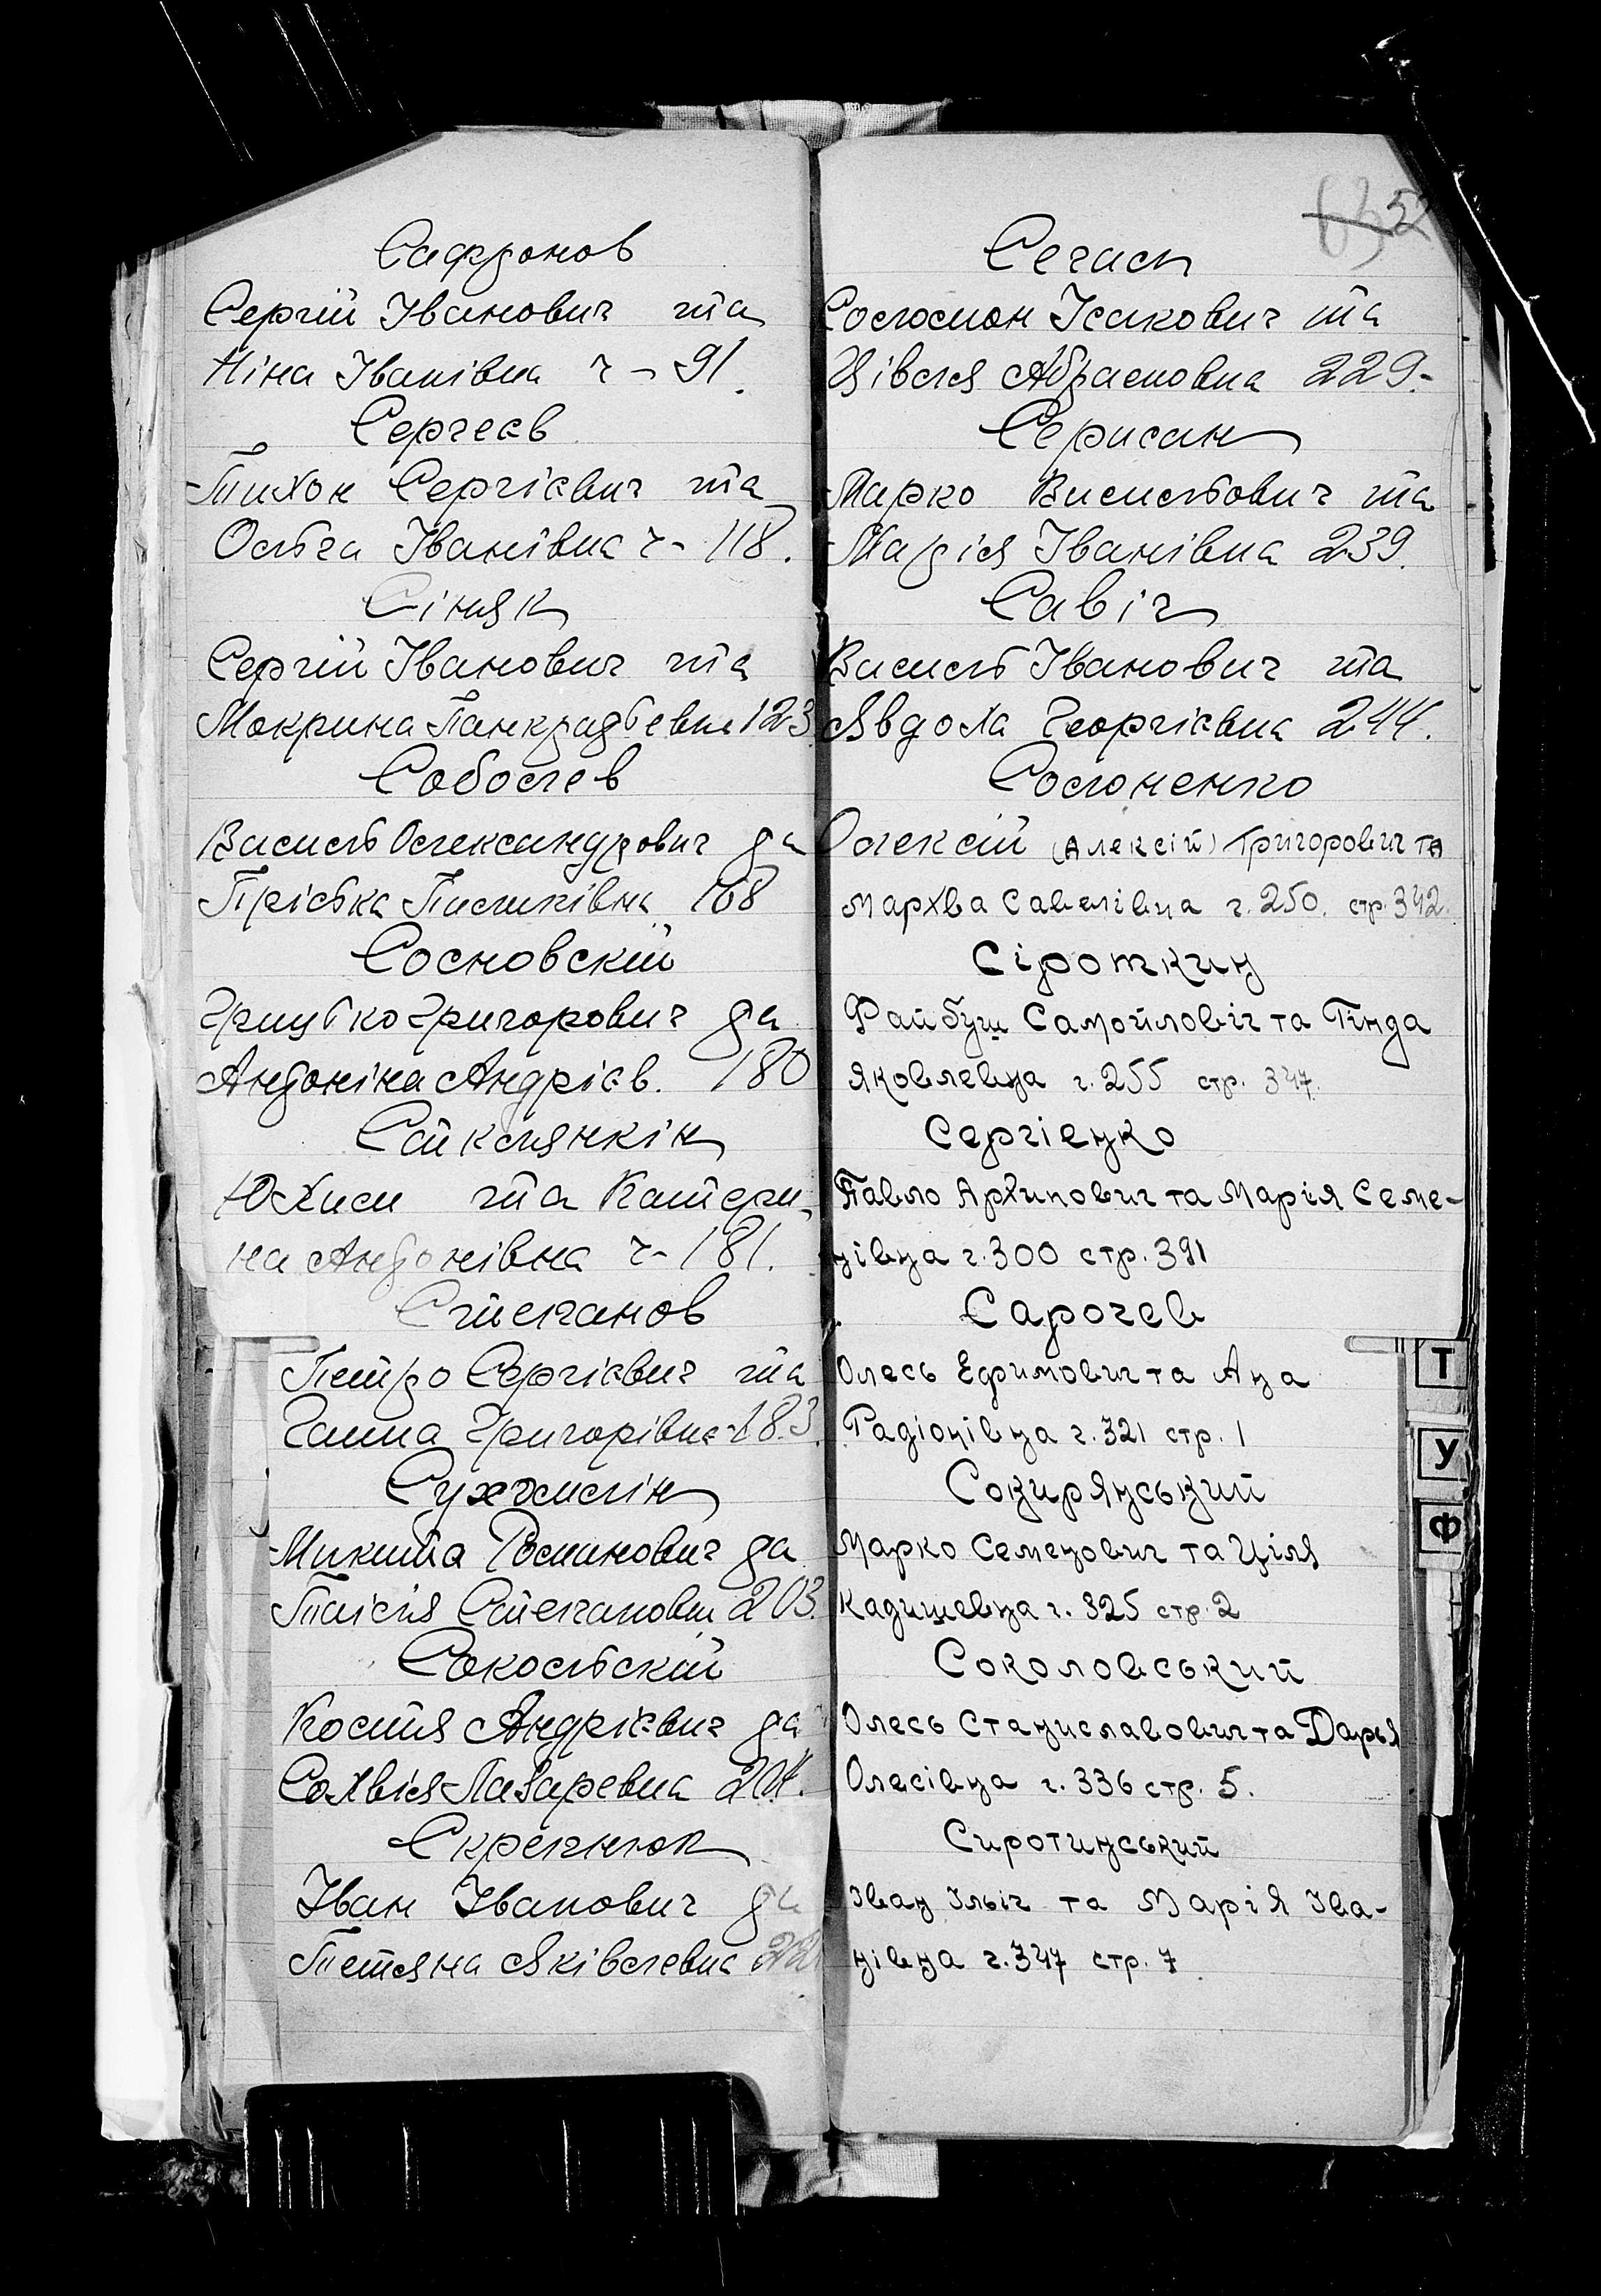 Сафронов
Сергій Іванович та
Ніна Іванівна ч - 91.
Сергеєв
Тихон Сергієвич та
Ольга Іванівна ч - 118.
Сіняк
Сергій Іванович та
Мокрина Панкрадьевна 123
Соболев
Василь Олександрович да
Пріська Пилипівна 168
Сосновскій
Грицько Григорович да
Антоніна Андрієв. 180
Юхим та Катери-
на Антонівна ч - 181.
Степанов
Петро Сергієвич та
Ганна Григорівна 183.
Сухомлін
Микита Романович да
Таісія Степановна 203.
Сокольскій
Костя Андрієвич да
Сохвія Лазаревна 204.
Скрепнюк
Іван Іванович да
Тетяна Яківлевна
52
Сегасп
Соломон Ісакович та
Цівля Абрамовна 229-
Марко Васильович та
Марія Іванівна 239.
Савіч
Василь Іванович та
Явдоха Георгієвна 244.
Солоненко
Олексій (Алексій) Григорович та
Мархва Савелівна г. 250. стр. 342.
Сіроткин
Файбуш Самойловіч та Гінда
Яковлевна г. 255 стр. 347.
Сергіенко
Павло Архипович та Марія Семе-
нівна г. 300 стр. 391
Сарочев
Олесь Ефимович та Ана
Радіонівна г. 321 стр. 1
Сокирянський
Марко Семенович та Ціля
Кадишевна г. 325 стр. 2
Соколовський
Олесь Станиславович та Дарья
Олесівна г. 336 стр. 5.
Сиротинський
Іван Ільіч та Марія Іва-
нівна г. 347 стр. 7
Т
У
Ф